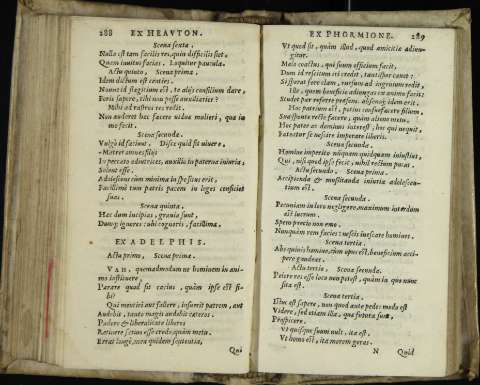 288 EX HEAVTON.
Scena sexta.
Nulla est tam facilis res, quin difficilis siet,
Quam inuitus facias. Loquitur pauvula.
Actu quinto, Scena prima.
Idem dictum est centies.
Nonne id flagitium est, te aliis consilium dare,
Foris sapere, tibi non posse auxiliarier?
Mihi ad rastros res redit.
Non auderet hæc facere viduæ mulieri, quæ in
me fecit.
Scena secunda.
Vulgò id fit. Disce quid sit viuere,
Matres omnes filiis
In peccato adiutrices, auxilio in paterna iniuria,
Solent esse.
Adolescens cum minima in spe situs erit,
Facillimè tum patris pacem in leges conficiet
suas.
Scena quinta.
Hæc dum incipias, grauia sunt,
Dumque ignores: vbi cognoris, facilima.
EX ADELPHIS.
Actu primo, Scena prima.
VAH, quemadmodum ne hominem in ani-
mo instituere,
Parare quod sit carius, quàm ipse est si-
bi?
Qui mentiri aut fallere, insuerit patrem, aut
Audebit, tanto magis audebit cæteros.
Pudore & liberalitate liberos
Retinere satius esse credo, quàm metu.
Errat longè, mea quidem sententia,
Qui
EX PHORMIONE. 289
Vt quod sit, quàm illud, quod amicitia adiun-
gitur.
Malo coactus, qui suum officium facit,
Dum id rescitum iri credit, tantisper cauet:
Si sperat fore clam, rursum ad ingenium redit.
Ille, quem beneficio adiungas ex animo facit:
Studet par referre præsens absensq; idem erit.
Hoc patrium est, potius consuefacere filium,
Sua sponte rectè facere, quàm alieno metu.
Hoc pater ac dominus interest, hoc qui nequit,
Fateatur se nescire imperare liberis.
Scena secunda.
Homine imperito nunquam quidquam iniustius,
Qui, nisi quod ipse facit, nihil rectum putat.
Actu secundo, Scena prima.
Accipienda & mussitanda iniuria adolescen-
tium est.
Scena secunda.
Pecuniam in loco negligere, maximum interdum
est lucrum.
Spem precio non emo.
Nunquam rem facies: nescis inescare homines.
Scena tertia.
Abs quiuis homine, cùm opus est, beneficium acci-
pere gaudeas.
Actu tertio, Scena secunda.
Peiore res esse loco non potest, quàm in quo nunc
sita est.
Scena tertia.
Istuc est sapere, non quod ante pedes modò est
Videre, sed etiam illa, quæ futura sunt,
Prospicere.
Vt quisque suum vult, ita est,
Vt homo est, ita morem geras.
N Quid